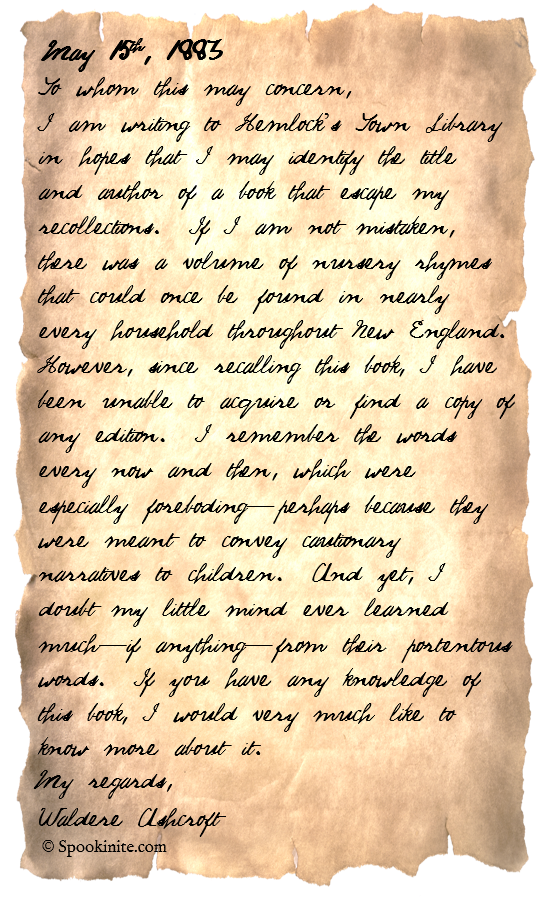 May 15th, 1883
To whom this may concern,
I am writing to Hemlock's Town Library
in hopes that I may identify the title
and author of a book that escape my
recollections. If I am not mistaken,
there was a volume of nursery rhymes
that could once be found in nearly
every household throughout New England.
However, since recalling this book, I have
been unable to acquire or find a copy of
any edition. I remember the words
every now and then, which were
especially foreboding—perhaps because they
were meant to convey cautionary
narratives to children. And yet, I
doubt my little mind ever learned
much—if anything—from their portentous
words. If you have any knowledge of
this book, I would very much like to
know more about it.
My regards,
Waldere Ashcroft
© Spookinite.com